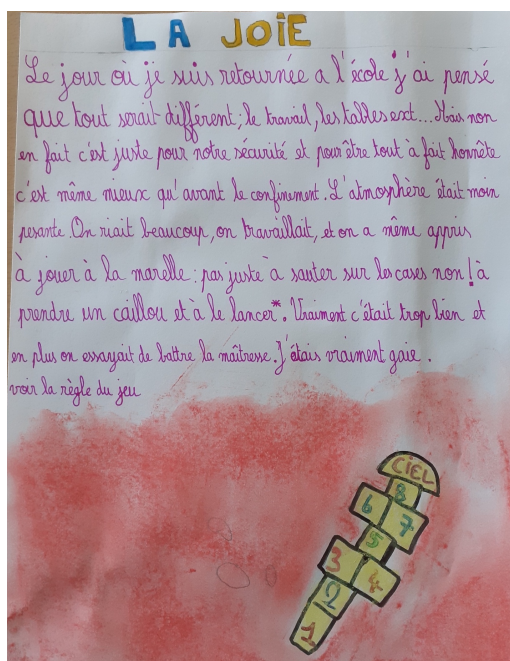 LA JOIE
Le jour où je suis retournée a l'école j'ai pensé
que tout serait différent; le travail, les tables ext... Mais non
en fait c'est juste pour notre sécurité et pour être tout à fait honnête
c'est même mieux qu'avant le confinement. L'atmosphère était moin
pesante. On riait beaucoup, on travaillait, et on a même appris
à jouer à la marelle: pas juste à sauter sur les cases non! à
prendre un caillou et à le lancer*. Vraiment c'était trop bien et
en plus on essayait de battre la maîtresse. J'étais vraiment gaie.
voir la règle du jeu
CIEL
8
6 7
5
3 4
2
1